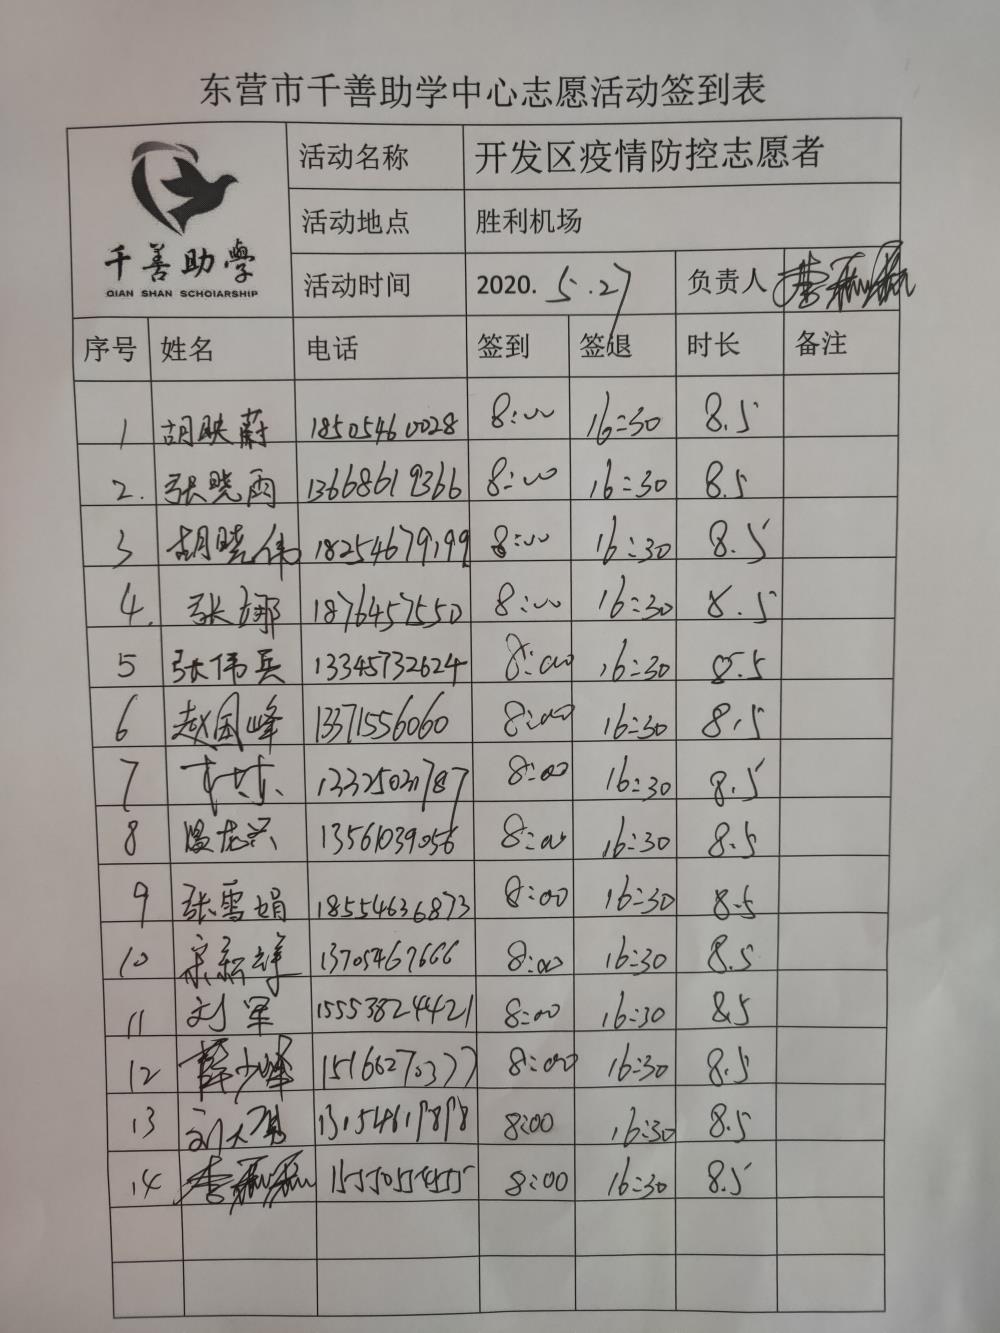 东营市千善助学中心志愿活动签到表
千善助学
QIAN SHAN SCHOIARSHIP
活动名称 开发区疫情防控志愿者
活动地点 胜利机场
活动时间 2020. 5.27 负责人
序号 姓名 电话 签到 签退 时长 备注
1 胡映蔚 18505460028 8:00 16:30 8.5
2. 张晓雨 13668619366 8:00 16:30 8.5
3 胡晓伟 18254679199 8:00 16:30 8.5
4. 张娜 1876457550 8:00 16:30 8.5
5 张伟兵 13345732624 8:00 16:30 8.5
6 赵国峰 13371556060 8:00 16:30 8.5
7 8:00 16:30 8.5
8 13561039056 8:00 16:30 8.5
9 张雪娟 18554636873 8:00 16:30 8.5
10 13705467666 8:00 16:30 8.5
11 刘军 15553824421 8:00 16:30 8.5
12 薛少峰 15166270377 8:00 16:30 8.5
13 8:00 16:30 8.5
14 8:00 16:30 8.5